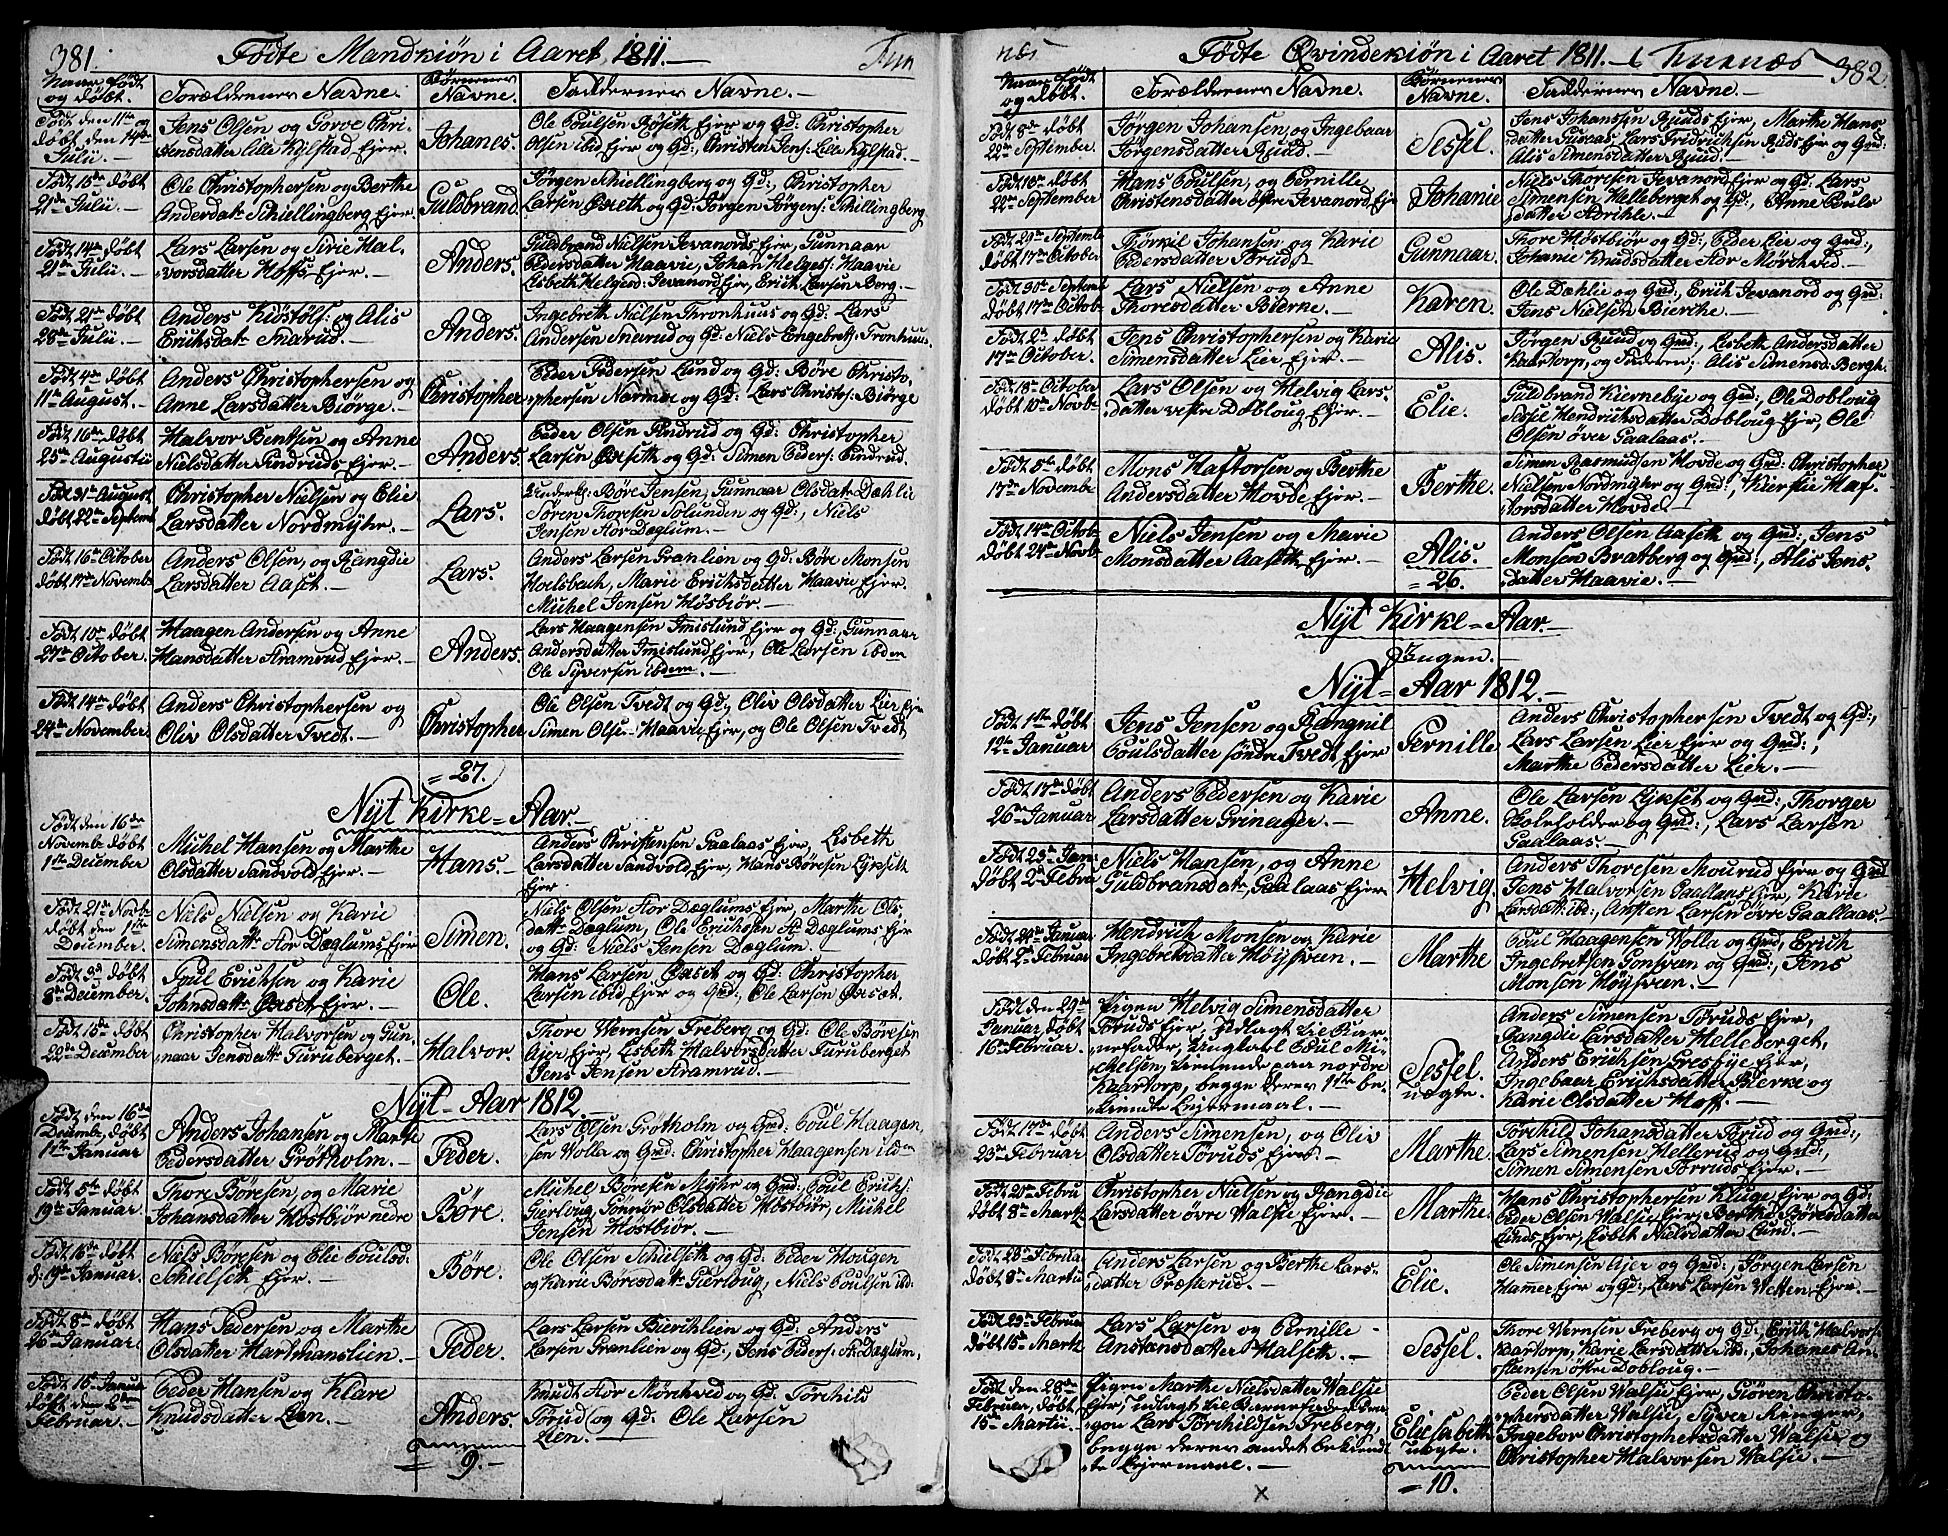 381.
Fødte Mandkiøn i Aaret 1811.—
Fur
Naar født
og døbt.
Forældrenes Navne.
Børnenes
Navne.
Faddernes Navne.
Født den 11te og
døbt den 14de
Julii.—
Jens Olsen og Gorve Chri-
stensdatter Lille Kylstad Ejer.
Johanes.
Ole Poulsen Røseth Ejer og Qd: Christopher
Olsen ibid Ejer og Qd:, Christen Jens: Lille Kylstad.—
Født 15de døbt
21de Julii.—
Ole Christophersen og Berthe
Andersdatr Schiellingberg Ejer.
Guldbrand.
Jørgen Schiellingberg og Qd:, Christopher
Larsen Øxseth og Qd: Jørgen Jørgens: Schillingberg
Født 14de døbt
21de Julii.—
Lars Larsen og Sirie Hal-
vorsdatter Hoffs Ejer.—
Anders.
Guldbrand Nielsen Jevanords Ejer, Gunnaar
Pedersdatter Haavie, Johan Helges: Haavie
Lisbeth Helgesd: Jevanord Ejer, Erich Larsen Berg.—
Født 21de døbt
28de Julii.—
Anders Kiøstøls: og Alis
Erichsdatr Snarud.—
Anders.
Ingebreth Nielsen Thronhuus og Qd: Lars
Andersen Snerud og Qd: Niels Engebreths: Tronhuus.
Født 4de døbt
11te August.—
Anders Christophersen og
Anne Larsdatter Biørge.—
Christopher
Peder Pedersen Lund og Qd: Børe Christo-
phersen Narmoe og Qd: Lars Christs: Biørge
Født 16de døbt
25de Augustii
Halvor Bentsen og Anne
Nielsdatter Findruds Ejer.—
Anders.
Peder Olsen Findrud og Qd: Christopher
Larsen Øxseth og Qd: Simen Peders: Findrud.
Født 31te August
døbt 22de Septemb
Christopher Nielsen og Elie
Larsdatter Nordmyhr.—
Lars.
Børe Jensen, Gunnaar Olsdatr Dæhlie
Søren Thoresen Solunden og Qd:, Niels
Jensen Stor Dæglum.—
Født 16de October
døbt 17de Novembr
Anders Olsen, og Rangdie
Larsdatter Aaset.—
Lars.
Anders Larsen Granlien og Qd: Børe Monsen
Holsbach, Marie Erichsdatter Haavie Ejer.
Michel Jensen Høsbiør.—
Født 10de døbt
27de October.—
Haagen Andersen og Anne
Hansdatter Stramrud Ejer.—
Anders.
Lars Haagensen Imislund Ejer og Qd: Gunnaar
Andersdatter Imislund Ejer, Ole Larsen ibdem
Ole Syversen ibdem.—
Født 14de døbt
24de November.
Anders Christophersen og
Oliv Olsdatter Tvedt.—
Christopher
Ole Olsen Tvedt og Qd:, Oliv Olsdatter Lier Ejer
Simen Olsen Haavie, Ejer, og Ole Olsen Tvedt
= 27.
Nyt Kirke = Aar.—
Født den 16de
Novembr døbt
1ste December
Michel Hansen og Marthe
Olsdatter Sandvold Ejer.—
Hans.—
Anders Christensen Gaalaas Ejer, Lisbeth
Larsdatter Sandvold Ejer, Hans Børesen Lykseth
Ejer
Født 21de Novbr
døbt den 1ste
December.—
Niels Nielsen og Karie
Simensdatr Stor Dæglums Ejer
Simen.
Niels Olsen Stor Dæglums Ejer, Marthe Ols
datr Dæglum, Ole Erichsen St: Dæglums Ejer
og Qd: Niels Jensen Dæglum.—
Født 3de døbt
8de December.
Poul Erichsen og Karie
Johnsdatr Øxset Ejer.—
Ole.
Hans Larsen Øxset og Qd: Christopher
Larsen ibid Ejer og Qd:, Ole Larsen Øxset.
Født 15de døbt
22de December
Christopher Halvorsen og Gun-
naar Jensdatr Furuberget.—
Halvor.
Thore Wernsen Freberg og Qd: Ole Børesen
Ajer Ejer, Lisbeth Halvorsdatter Furuberget
Jens Jensen Stramrud.—
Nyt - Aar 1812.
Født den 16de
Decembr, døbt
1ste Januar
Anders Johansen og Marthe
Pedersdatter Grøtholm.—
Peder.
Lars Olsen Grøtholm og Qd: Poul Haagen-
sen Wolla og Qd: Christopher Haagensen ibdm
Født 5te døbt
19de Januar.
Thore Børesen, og Marie
Johansdatter Høstbiør nedre
Børe.
Michel Børesen Myhr og Qd: Poul Erichs:
Gierloug, Gonnor Olsdatter Høstbiør, Michel
Jensen Høstbiør.—
Født 16de døbt
d. 19de Januar.
Niels Børesen og Elie Poulsd:
Schielseth Ejer.—
Børe.
Ole Olsen Schielseth og Qd: Peder Hougen
og Karie Børesdatr Gierloug, Niels Poulsen ibd:
Født 8de døbt
26de Januar.
Hans Pedersen og Marthe
Olsdatter Hartmanslien.—
Peder.
Lars Larsen Bierchlien og Qd: Anders
Larsen Granlien og Qd:, Jens Peders: St: Dæglum,
Født 15de Januar
døbt den 8de
Februar.—
Peder Hansen og Klare
Knudsdatter Lien.—
Anders.
Knudt Stor Mørchved og Qd: Torchild
Torud og Qd: Ole Larsen
Lien.—
= 9.—
næs
Fødte Qvindekiøn i Aaret 1811.— Furnæs
382
Naar født
og døbt.
Forældrenes Navne.
Børnenes
Navne.
Faddernes Navne.
Født 8de døbt
22de September.
Jørgen Johansen og Ingebaar
Jørgensdatter Ruud.—
Sessel.
Jens Johanssen Ruuds Ejer, Marthe Hans
datter, Lars Fridrichsen Ruds Ejer og Qd:
Alis Simensdatter Ruud.—
Født 10de døbt
22de September
Hans Poulsen, og Pernille
Christensdatter østre Jevanord Ejer
Johanie
Niels Thoresen Jevanord Ejer og Qd: Lars
Simensen Helleberget og Qd:, Anne Pouls
datter
Født 29de Septembr
døbt 17de October
Thorkil Johansen og Karie
Pedersdatter Strud,—
Gunnaar.
Thore Høstbiør og Qd:, Peder Lier og Qd:,
Johanie Knudsdatter Stor Mørchved.—
Født 30te Septemb
døbt 17de Octobr
Lars Nielsen og Anne
Thoresdatter Bierne.—
Karen.
Ole Dæhlie og Qd:, Erich Jevanord og Qd:
Jens Nielsen Bierche.—
Født 2de døbt
17de October.
Jens Christophersen og Karie
Simensdatter Lier Ejer.—
Alis.
Jørgen Ruud og Qd:, Lisbeth Andersdatter
Kaartorp, og Alis Simensd: Bergh.
Født 18de October
døbt 10de Novbr
Lars Olsen og Helvig Lars-
datter vestre Dobloug Ejer.—
Elie.
Guldbrand Kiernebye og Qd:, Ole Dobloug
Sesil Hendrichsdatter Dobloug Ejer, Ole
Olsen øver Gaalaas.—
Født 5te døbt
17de Novembr
Mons Haftorsen og Berthe
Andersdatter Hovde Ejer.—
Berthe.
Simen Rasmudsen Hovde og Qd: Christopher
Nielsen Nordmyhr og Qd:, Kierstie Haf-
torsdatter Hovde
Født 14de Octobr
døbt 24de Novbr
Niels Jensen og Marie
Monsdatter Aaseth Ejer.—
Alis.
= 26.
Anders Olsen Aaseth og Qd: Jens
Monsen Bratberg og Qd:, Alis Jens-
datter Haavie.—
Nyt Kirke = Aar.—
Ingen.—
Nyt = Aar 1812.—
Født 1ste døbt
12te Januar
Jens Jensen og Rangnil
Poulsdatter søndre Tvedt Ejer
Pernille
Anders Christophersen Tvedt og Qd:,
Lars Larsen Lier Ejer og Qd:,
Marthe Pedersdatter Lier.—
Født 17de døbt
26de Januar
Anders Pedersen og Karie
Larsdatter Grinager.—
Anne.
Ole Larsen Lykset og Qd:, Thorger
Boleholder og Qd:, Lars Larsen
Gaalaas.—
Født 23de Jan:
døbt 2de Februar
Niels Hansen, og Anne
Guldbransdatr, Gaalaas Ejer
Helvig
Anders Thoresen Mourud Ejer og Qd
Jens Halvorsen Gaallaas Ejer, Karie
Larsdatr: ibd:, Ansten Larsen øvre Gaallaas.—
Født 24de Januar
døbt 2de Februar
Hendrich Monsen og Karie
Ingebretsdatter Høysveen.—
Marthe
Poul Haagensen Wolla og Qd, Erich
Ingebretsen Jonsveen og Qd:, Jens
Monsen Høysveen.—
Født den 29de
Januar, døbt
16de Februar.
Pigen Helvig Simensdatter
Toruds Ejer, udlagt til Bar-
nefader, Ungkarl Poul Mi-
chelsen, tienende paa nordre
Kaartorp, begge deres 1ste be-
kiendte Lejermaal.—
Sessel.
uægte.
Anders Simensen Toruds Ejer,
Rangdie Larsdatter Helleberget,
Anders Erichsen Gresbye Ejer,
Ingebaar Erichsdatter Bierke og
Karie Olsdatter Hoff.—
Født 17de døbt
23de Februar
Anders Simensen, og Oliv
Olsdatter Toruds Ejer.—
Marthe.
Torchild Johansdatter Torud og Qd:,
Lars Simensen, Hellerud og Qd:,
Simen Simensen Torruds Ejer.—
Født 20de Februar
døbt 8de Martz
Christopher Nielsen og Rangdie
Larsdatter øvre Walsie Ejer.—
Marthe.
Hans Christophersen Kluge Ejer og Qd:
Peder Olsen Walsie Ejer, Berthe Børesdatter
Lunds Ejer, Lisbet Nielsdatter Lund.—
Født 23de Februar
døbt 8de Martii
Anders Larsen og Berthe Lars-
datter Præsterud.—
Elie.
Ole Simensen Ajer og Qd:, Jørgen Larsen
Hammer Ejer og Qd:, Lars Larsen Wetten Ejer.
Født 29de Februar
døbt 15de Martz
Lars Larsen og Pernille
Anstensdatter Halseth.—
Sessel.
Thore Wernsen Freberg og Qd:, Erich Halvors:
Kaartorp, Karie Larsdatter ibd:, Johanes An-
stensen østre Dobloug.—
Født den 28de
Februar, døbt
15de Martii.—
Pigen Marthe Nielsdatter Walsie
Ejer, udlagt til Barnefader Dra-
gon Lars Torchildsen Freberg,
begge deres andet bekiend-
te Lejermaal.—
Eliesabeth
uægte.
= 10.
Peder Olsen Walsie Ejer, Giøren Christo-
phersdatter Walsie, Syver Ringer,
Ingebor Christophersdatter Walsie og
Christopher Halvorsen Walsie.—
x